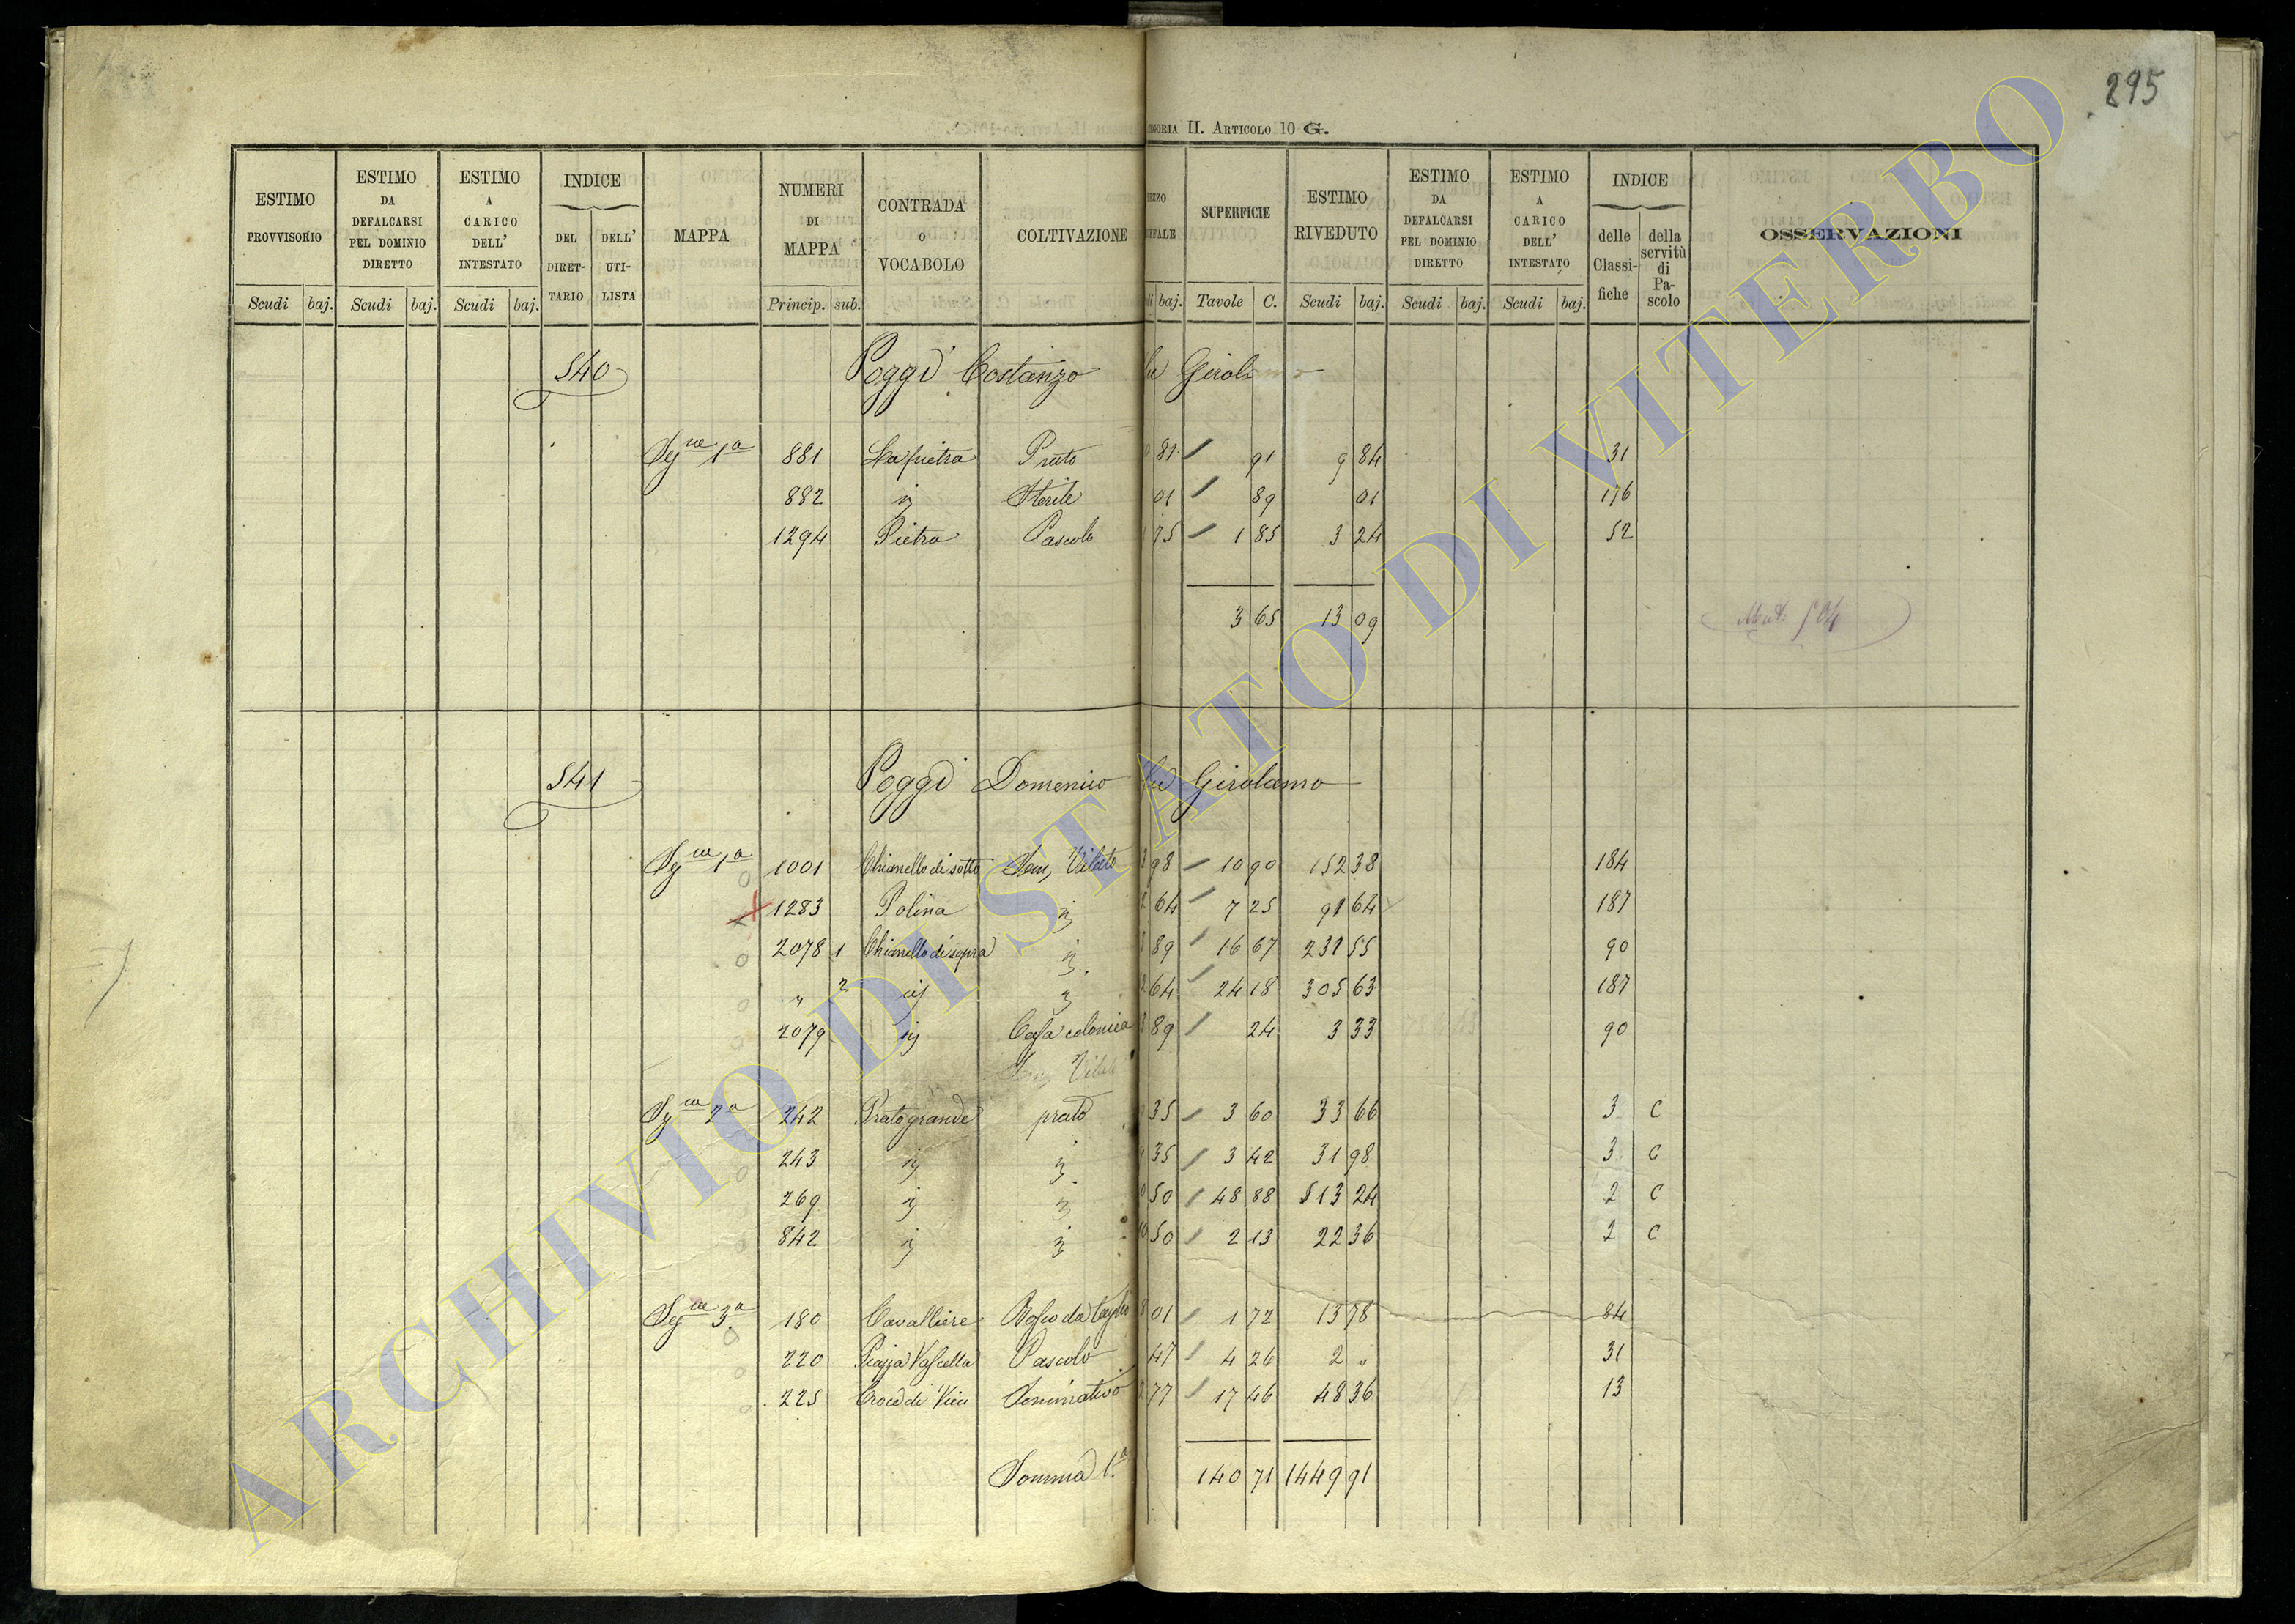 295
EGORIA II. ARTICOLO 10 G.
ESTIMO PROVVISORIO | ESTIMO DA DEFALCARSI PEL DOMINIO DIRETTO | ESTIMO A CARICO DELL' INTESTATO | INDICE DEL DIRET-TARIO | DELL' UTI-LISTA | MAPPA | NUMERI DI MAPPA | CONTRADA O VOCABOLO | COLTIVAZIONE | SUPERFICIE | ESTIMO RIVEDUTO | ESTIMO DA DEFALCARSI PEL DOMINIO DIRETTO | ESTIMO A CARICO DELL' INTESTATO | INDICE delle Classi-fiche | della servitù di Pa-scolo | OSSERVAZIONI
Scudi baj. Scudi baj. Scudi baj. Princip. sub. baj. Tavole C. Scudi baj. Scudi baj. Scudi baj.
540 Poggi Costanzo fu Girolamo
Sez.ne 1a 881 La pietra Prato 81 91 9 84 31
882 id Sterile 01 89 01 176
1294 Pietra Pascolo 75 1 85 3 24 52
3 65 13 09
541 Poggi Domenico fu Girolamo
Sez.ne 1a 1001 Chianello di sotto Sem. Vitato 98 10 90 152 38 184
1283 Polina id 64 7 25 91 64 187
2078 1 Chianello di sopra id 89 16 67 231 55 90
" 2 id id 64 24 18 305 63 187
2079 id Casa colonica 89 24 3 33 90
Sez.ne 2a 242 Prato grande prato 35 3 60 33 66 3 C
243 id id 35 3 42 31 98 3 C
269 id id 50 48 88 513 24 2 C
842 id id 50 2 13 22 36 2 C
Sez.ne 3a 180 Cavalliere Bosco da taglio 01 1 72 13 78 84
220 Piazza Vascella Pascolo 47 4 26 2 " 31
225 Croce di Vico Seminativo 77 17 46 48 36 13
Somma 1.a 140 71 1449 91
ARCHIVIO DI STATO DI VITERBO